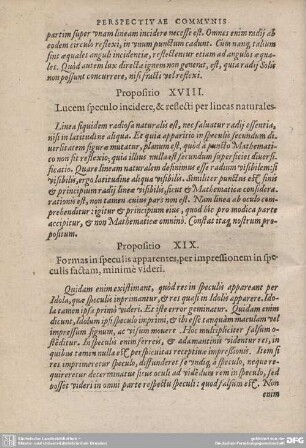 PERSPECTIVAE COMMVNIS
partim super vnam lineam incidere necesse est. Omnes enim radij ab
eodem circulo reflexi, in vnum punctum cadunt. Cum nanq; talium
sint æquales anguli incidentiæ, reflectentur etiam ad angulos æqua-
les. Quòd autem lux directa ignem non generat, est, quia radij Solis
non possunt concurrere, nisi fracti vel reflexi.
Propositio XVIII.
Lucem speculo incidere, & reflecti per lineas naturales.
Linea siquidem radiosa naturalis est, nec saluatur radij essentia,
nisi in latitudine aliqua. Et quia apparitio in speculis secundum di-
uersitatem figuræ mutatur, planum est, quòd à puncto Mathemati-
co non fit reflexio, quia illius nulla est secundum superficiei diuersi-
ficatio. Quare lineam naturalem definientes esse radium visibilem: si
visibilis, ergo latitudine aliqua visibilis. Similiter punctus eius finis
& principium radij lineæ visibilis, sicut & Mathematicæ considera-
tionis est, non tamen cuius pars non est. Nam linea ab oculo com-
prehenditur: igitur & principium eius, quod hîc pro modica parte
accipitur, & non Mathematicè omnino. Constat itaq; nostrum pro-
positum.
Propositio XIX.
Formas in speculis apparentes, per impressionem in spe-
culis factam, minimè videri.
Quidam enim existimant, quòd res in speculis appareant per
Idola, quæ speculis inprimantur, & res quasi in Idolis apparere. Ido-
la tamen ipsa primò videri. Et iste error geminatur. Quidam enim
dicunt, Idolum ipsi speculo imprimi, & ibi esse tanquàm maculam vel
impressum signum, ac visum mouere. Hoc multipliciter falsum o-
stenditur. In speculis enim ferreis, & adamantinis videntur res, in
quibus tamen nulla est perspicuitas receptiuæ impressionis. Item si
res imprimeretur speculo, diffunderet se vndiq; à speculo, neque re-
quireretur determinatus situs oculi ad videndum rem in speculo, sed
posset videri in omni parte respectu speculi: quod falsum est. Non
enim